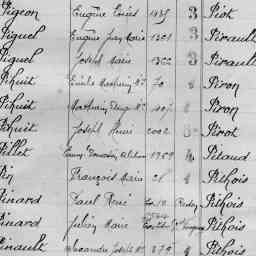 Pigeon Eugène Louis 1835 3 Piot
Piguel Eugène Jean Marie 1301 3 Pirault
Piguel Joseph Marie 1302 3 Pirault
Pihuit Emile Mathurin Mie 70 Piron
Pihuit Mathurin Ange Mie 1407 Piron
Pihuit Joseph Pierre 2002 3 Pirot
Pillet 1959 4 Pitaud
Pin François Marie 21 4 Pithois
Pinard Paul René Pithois
Pinard Julien Marie Pithois
Pinault Alexandre Joseph Mie 379 4 Pithois